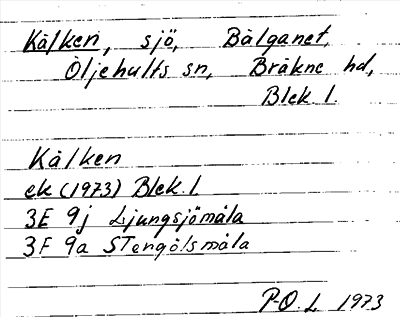 Kälken, sjö, Bälganet,
Öljehults sn, Bräkne hd,
Blek l.
Kälken
ek (1973) Blek. l.
3E 9j Ljungsjömåla
3F 9a Stengölsmåla
P.O.L 1973